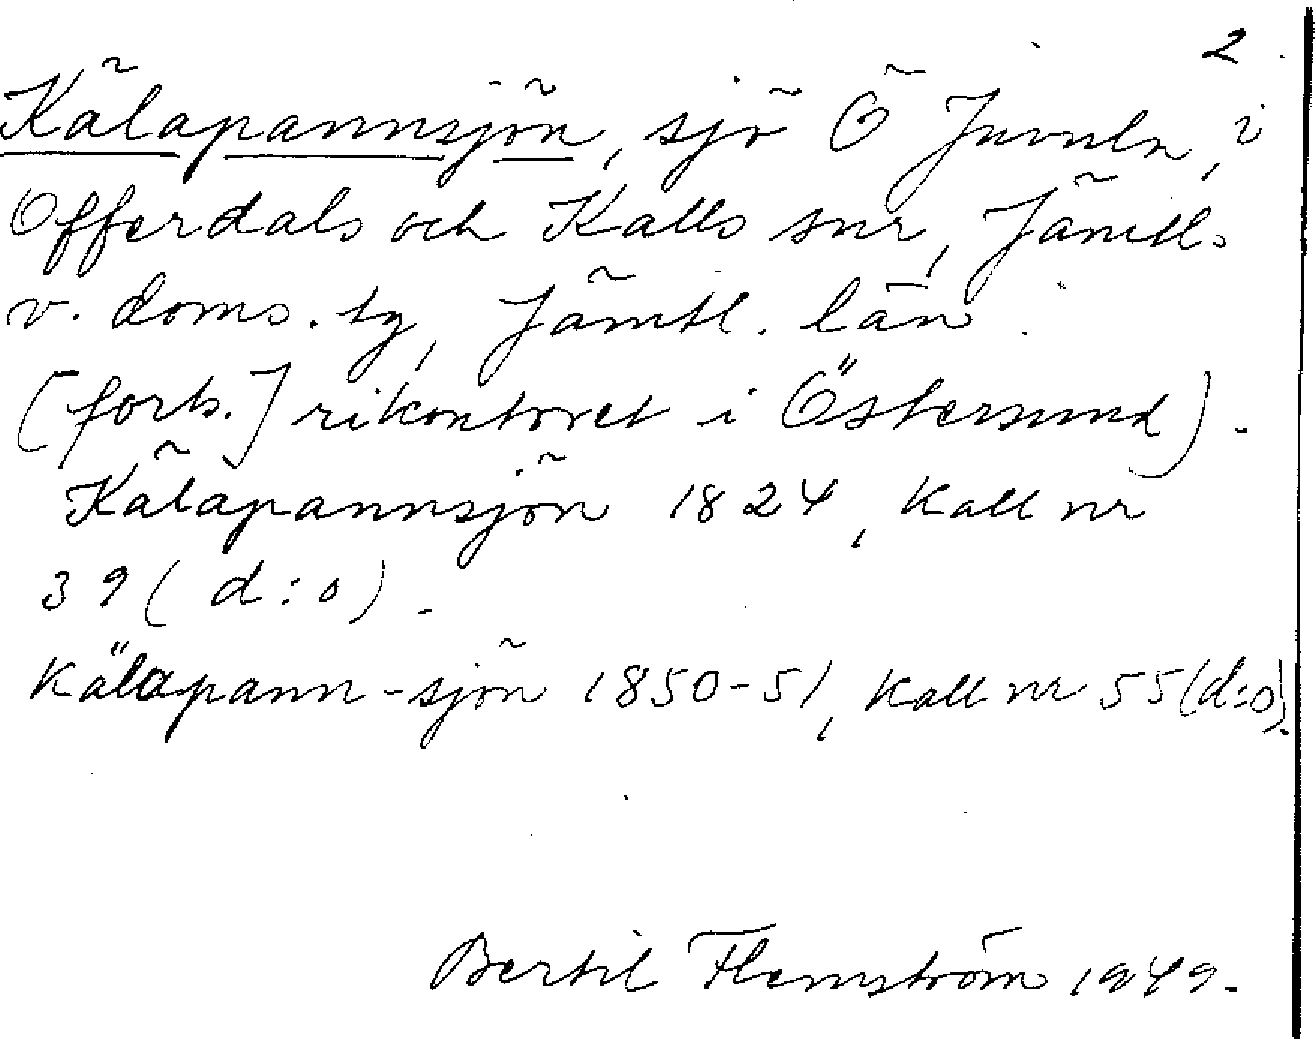 2.
Kälapannsjön, sjö Ö Juvuln, i
Offerdals och Kalls snr, Jämtls
v. doms. tg, Jämtl. län.
[forts.] rikontoret i Östersund).
Kälapannsjön 1824, Kall nr
39 (d:o).
Kälapann-sjön 1850-51, Kall nr 55 (d:o).
Bertil Flemström 1949.